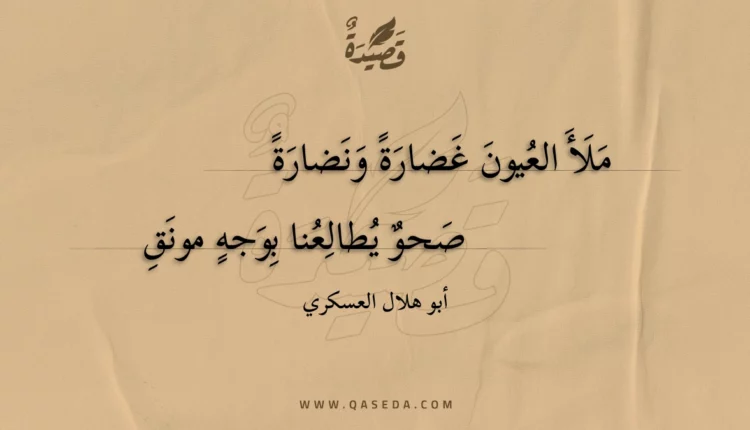 قَصِيدَةٌ
مَلَأَ العُيونَ غَضارَةً وَنَضارَةً
صَحوٌ يُطالِعُنا بِوَجهٍ مونَقِ
أبو هلال العسكري
WWW.QASEDA.COM